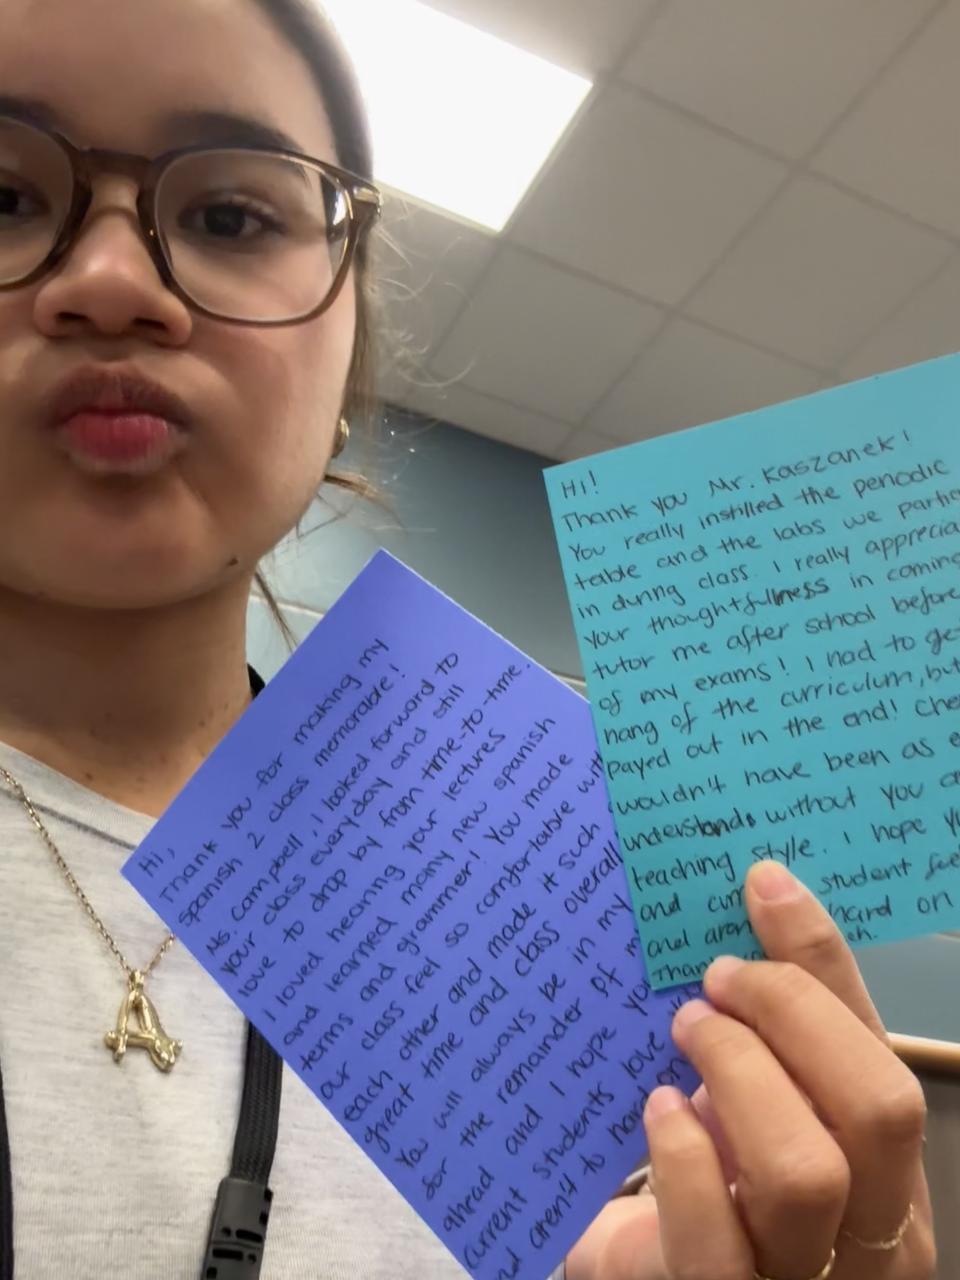 Hi,
Thank you for making my
spanish 2 class memorable!
Ms. campbell, I looked forward to
your class everyday and still
love to drop by from time-to-time.
I loved hearing your lectures
and learned many new spanish
terms and grammer! You made
our class feel so comfortable with
each other and made it such
great time and class overall
You will always be in my
for the remainder of m
ahead and I hope you
current students love y
nd aren't to hard on
Hi!
Thank you Mr. Kaszanek!
You really instilled the periodic
table and the labs we partici
in during class. I really apprecia
your thoughtfullness in coming
tutor me after school before
of my exams! I had to get
hang of the curriculum, but
payed out in the end! Che
wouldn't have been as e
understands without you a
teaching style. I hope y
and curr student fee
and aren hard on
Than eh.